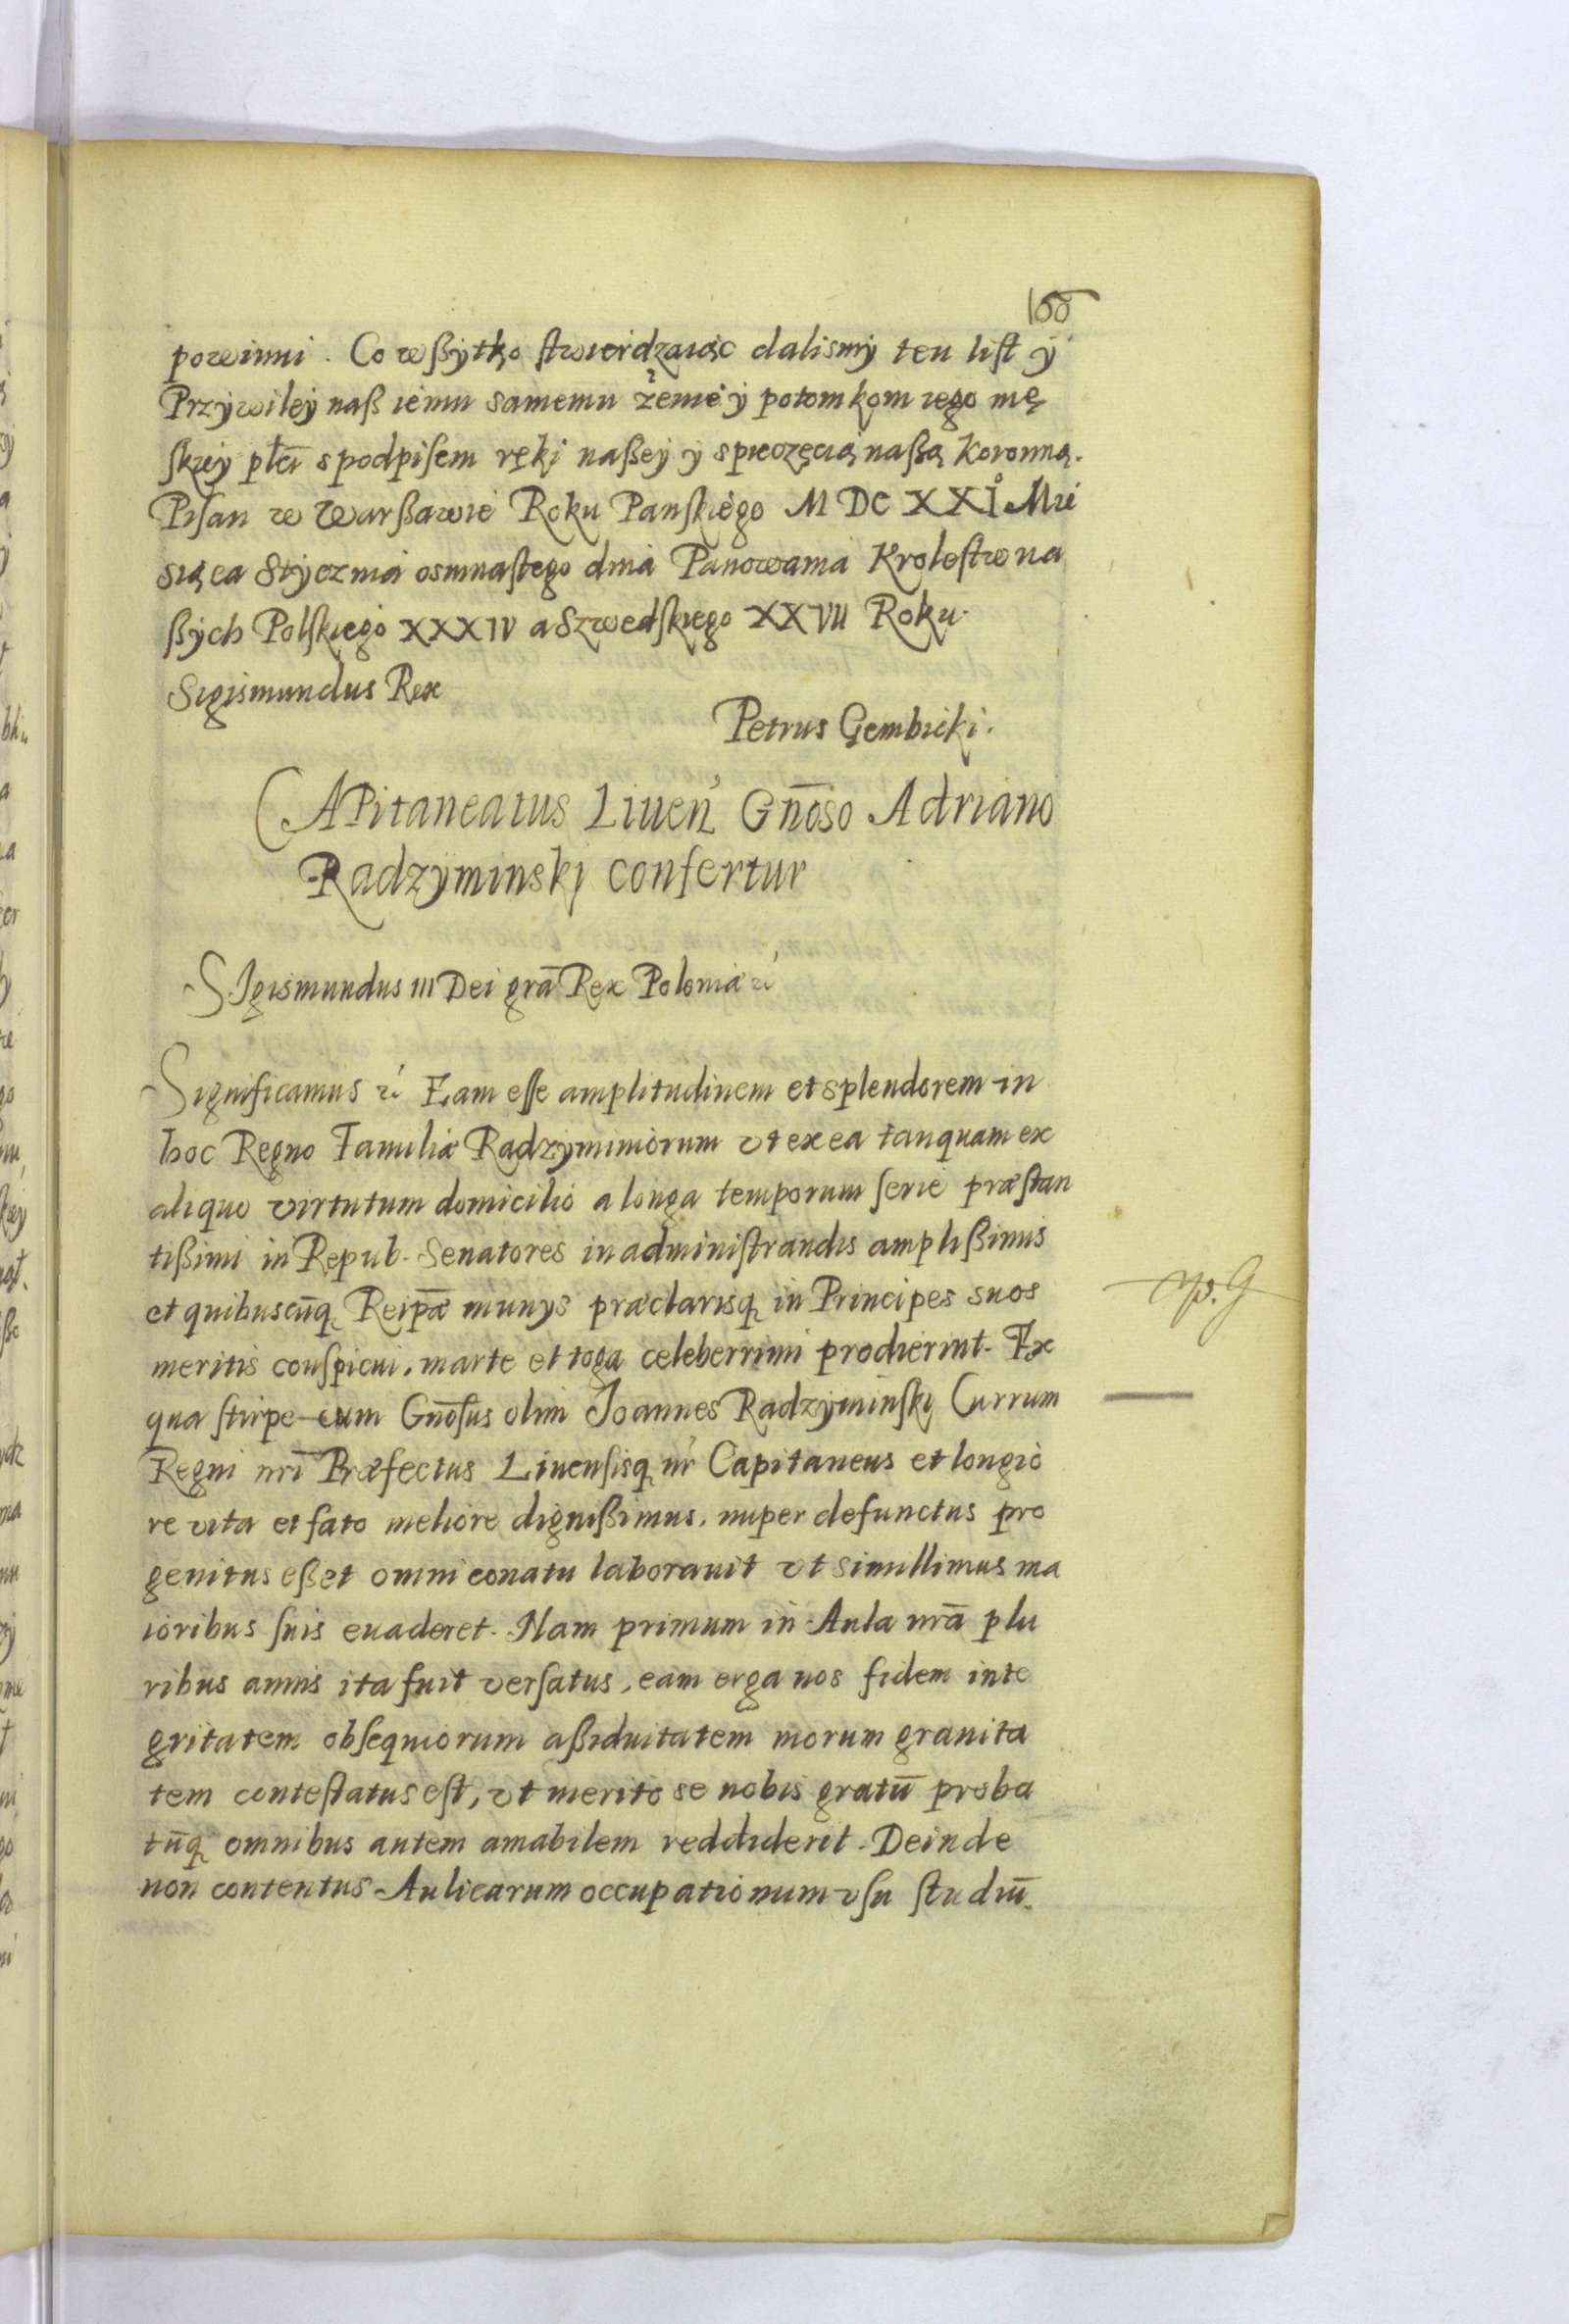 166
powinni. Co wßÿtko ſtwierdzaiąc dalismÿ ten liſt ÿ
Przÿwileÿ naß iemu samemu żenie ÿ potomkom iego mę
ſkieÿ płći s podpiſem ręki naßeÿ ÿ s pieczęcią naßą Koronną.
Piſan w Warßawie Roku Panſkiego MDCXXI̊ Mie
siąca Stÿcznia osmnaſtego dnia Panowania Kroleſtw na
ßÿch Polſkiego XXXIV a Szwedſkiego XXVII Roku.
Sigismundus Rex
Petrus Gembicki.
CAPitaneatus Liuen̄ Gn̄oso Adriano
Radzÿminski confertur
SIgismundus III Dei grā Rex Poloniæ
Significamus Eam eſſe amplitudinem et splendorem in
hoc Regno Familiæ Radzÿminiorum vt ex ea tanquam ex
aliquo virtutum domicilio a longa temporum ſerie præſtan
tißimi in Repub. Senatores in adminiſtrandis amplißimis
et quibuscūq Reipæ munÿs præclarisq in Principes suos
meritis conſpicui, marte et toga celeberrimi prodierint. Ex
qua ſtirpe cum Gnōſus olim Joannes Radzÿminſki Currum
Regni nri Præfectus Liuenſisq nr Capitaneus et longio
re vita et fato meliore dignißimus, nuper defunctus pro
genitus eßet omni conatu laborauit vt simillimus ma
ioribus ſuis euaderet. Nam primum in Aula nrā plu
ribus annis ita fuit verſatus, eam erga nos fidem inte
gritatem obſequiorum aßiduitatem morum grauita
tem conteſtatus eſt, vt merito se nobis gratū proba
tūq omnibus autem amabilem reddiderit. Deinde
non contentus Aulicarum occupationum vſu ſtudiū